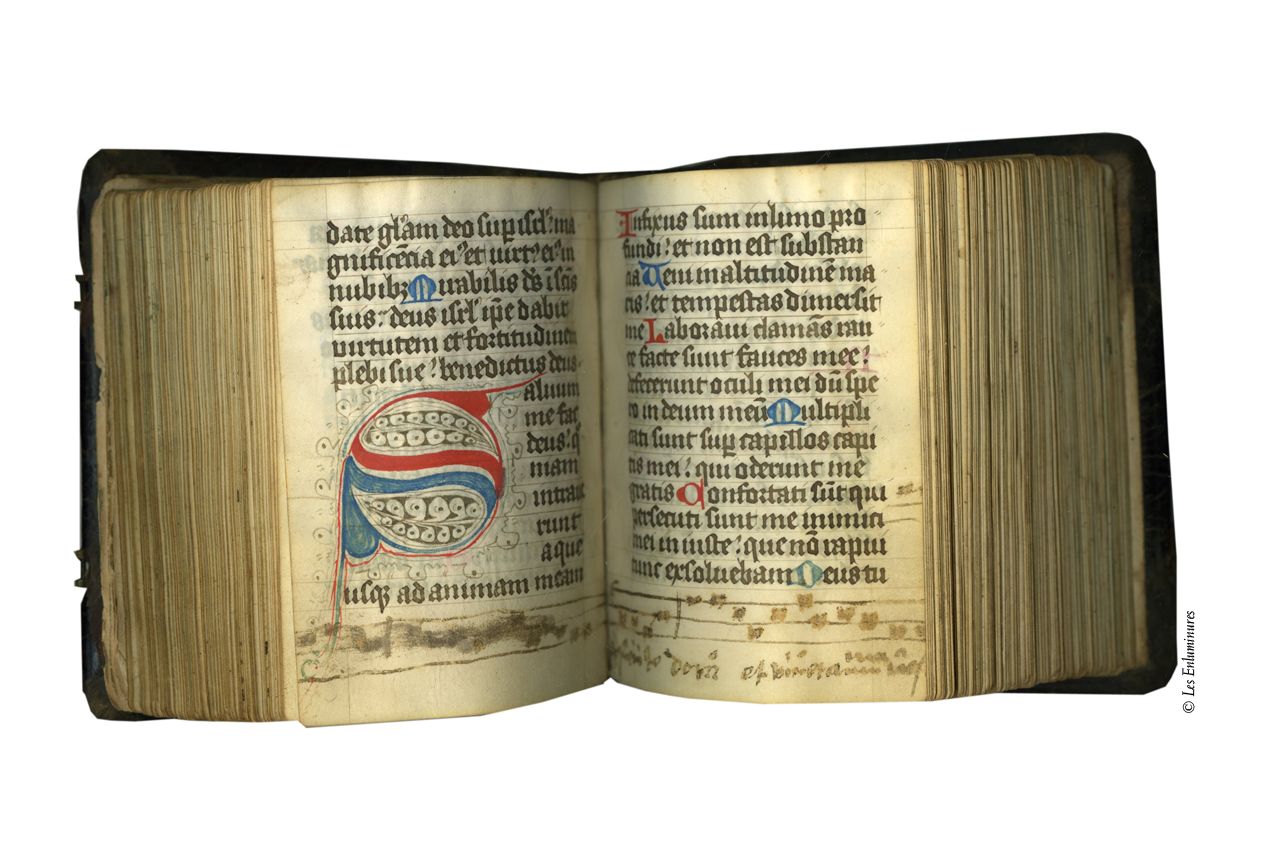 date gl'am deo sup isrl' ma
gnificẽcia ei' et uirt' ei' in
nubibꝫ Mirabilis ds' ĩ scĩs
suis: deus isrl' ip̃e dabit
uirtutem et fortitudinem
plebi sue: benedictus deus.
Saluum
me fac
deus: q̃
niam
intraue
runt
aque
usqꝫ ad animam meam
Infixus sum in limo pro
fundi: et non est substan
tia Veni in altitudinẽ ma
ris: et tempestas dimersit
me Laboraui clamãs rau
ce facte sunt fauces mee:
defecerunt oculi mei dũ spe
ro in deum meũ Multipli
cati sunt sup capillos capi
tis mei: qui oderunt me
gratis Confortati sũt qui
persecuti sunt me inimici
mei iniuste: que nõ rapui
tunc exsoluebam Deus tu
et
© Les Enluminures